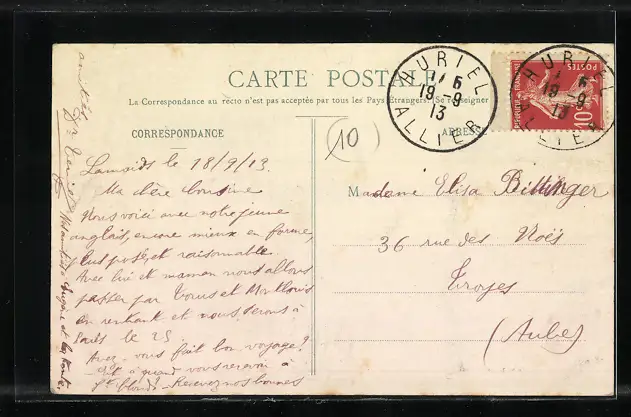 CARTE POSTALE
La Correspondance au recto n'est pas acceptée par tous les Pays Étrangers. (Se renseigner
CORRESPONDANCE
ADRESSE
(10)
HURIEL
19-9
13
ALLIER
HURIEL
19-9
13
ALLIER
POSTES
10
le 18/9/13.
Ma chère Cousine
Nous voici avec notre jeune
anglais, encore mieux en forme,
plus posé, et raisonnable.
Avec lui et maman nous allons
passer par Tours et Montlouis
en rentrant et nous serons à
Paris le 25
Avez-vous fait bon voyage?
et à quand vous revoir à
Recevez nos bonnes
amitiés
Madame Elisa
36 rue des Noës
Troyes
(Aube)